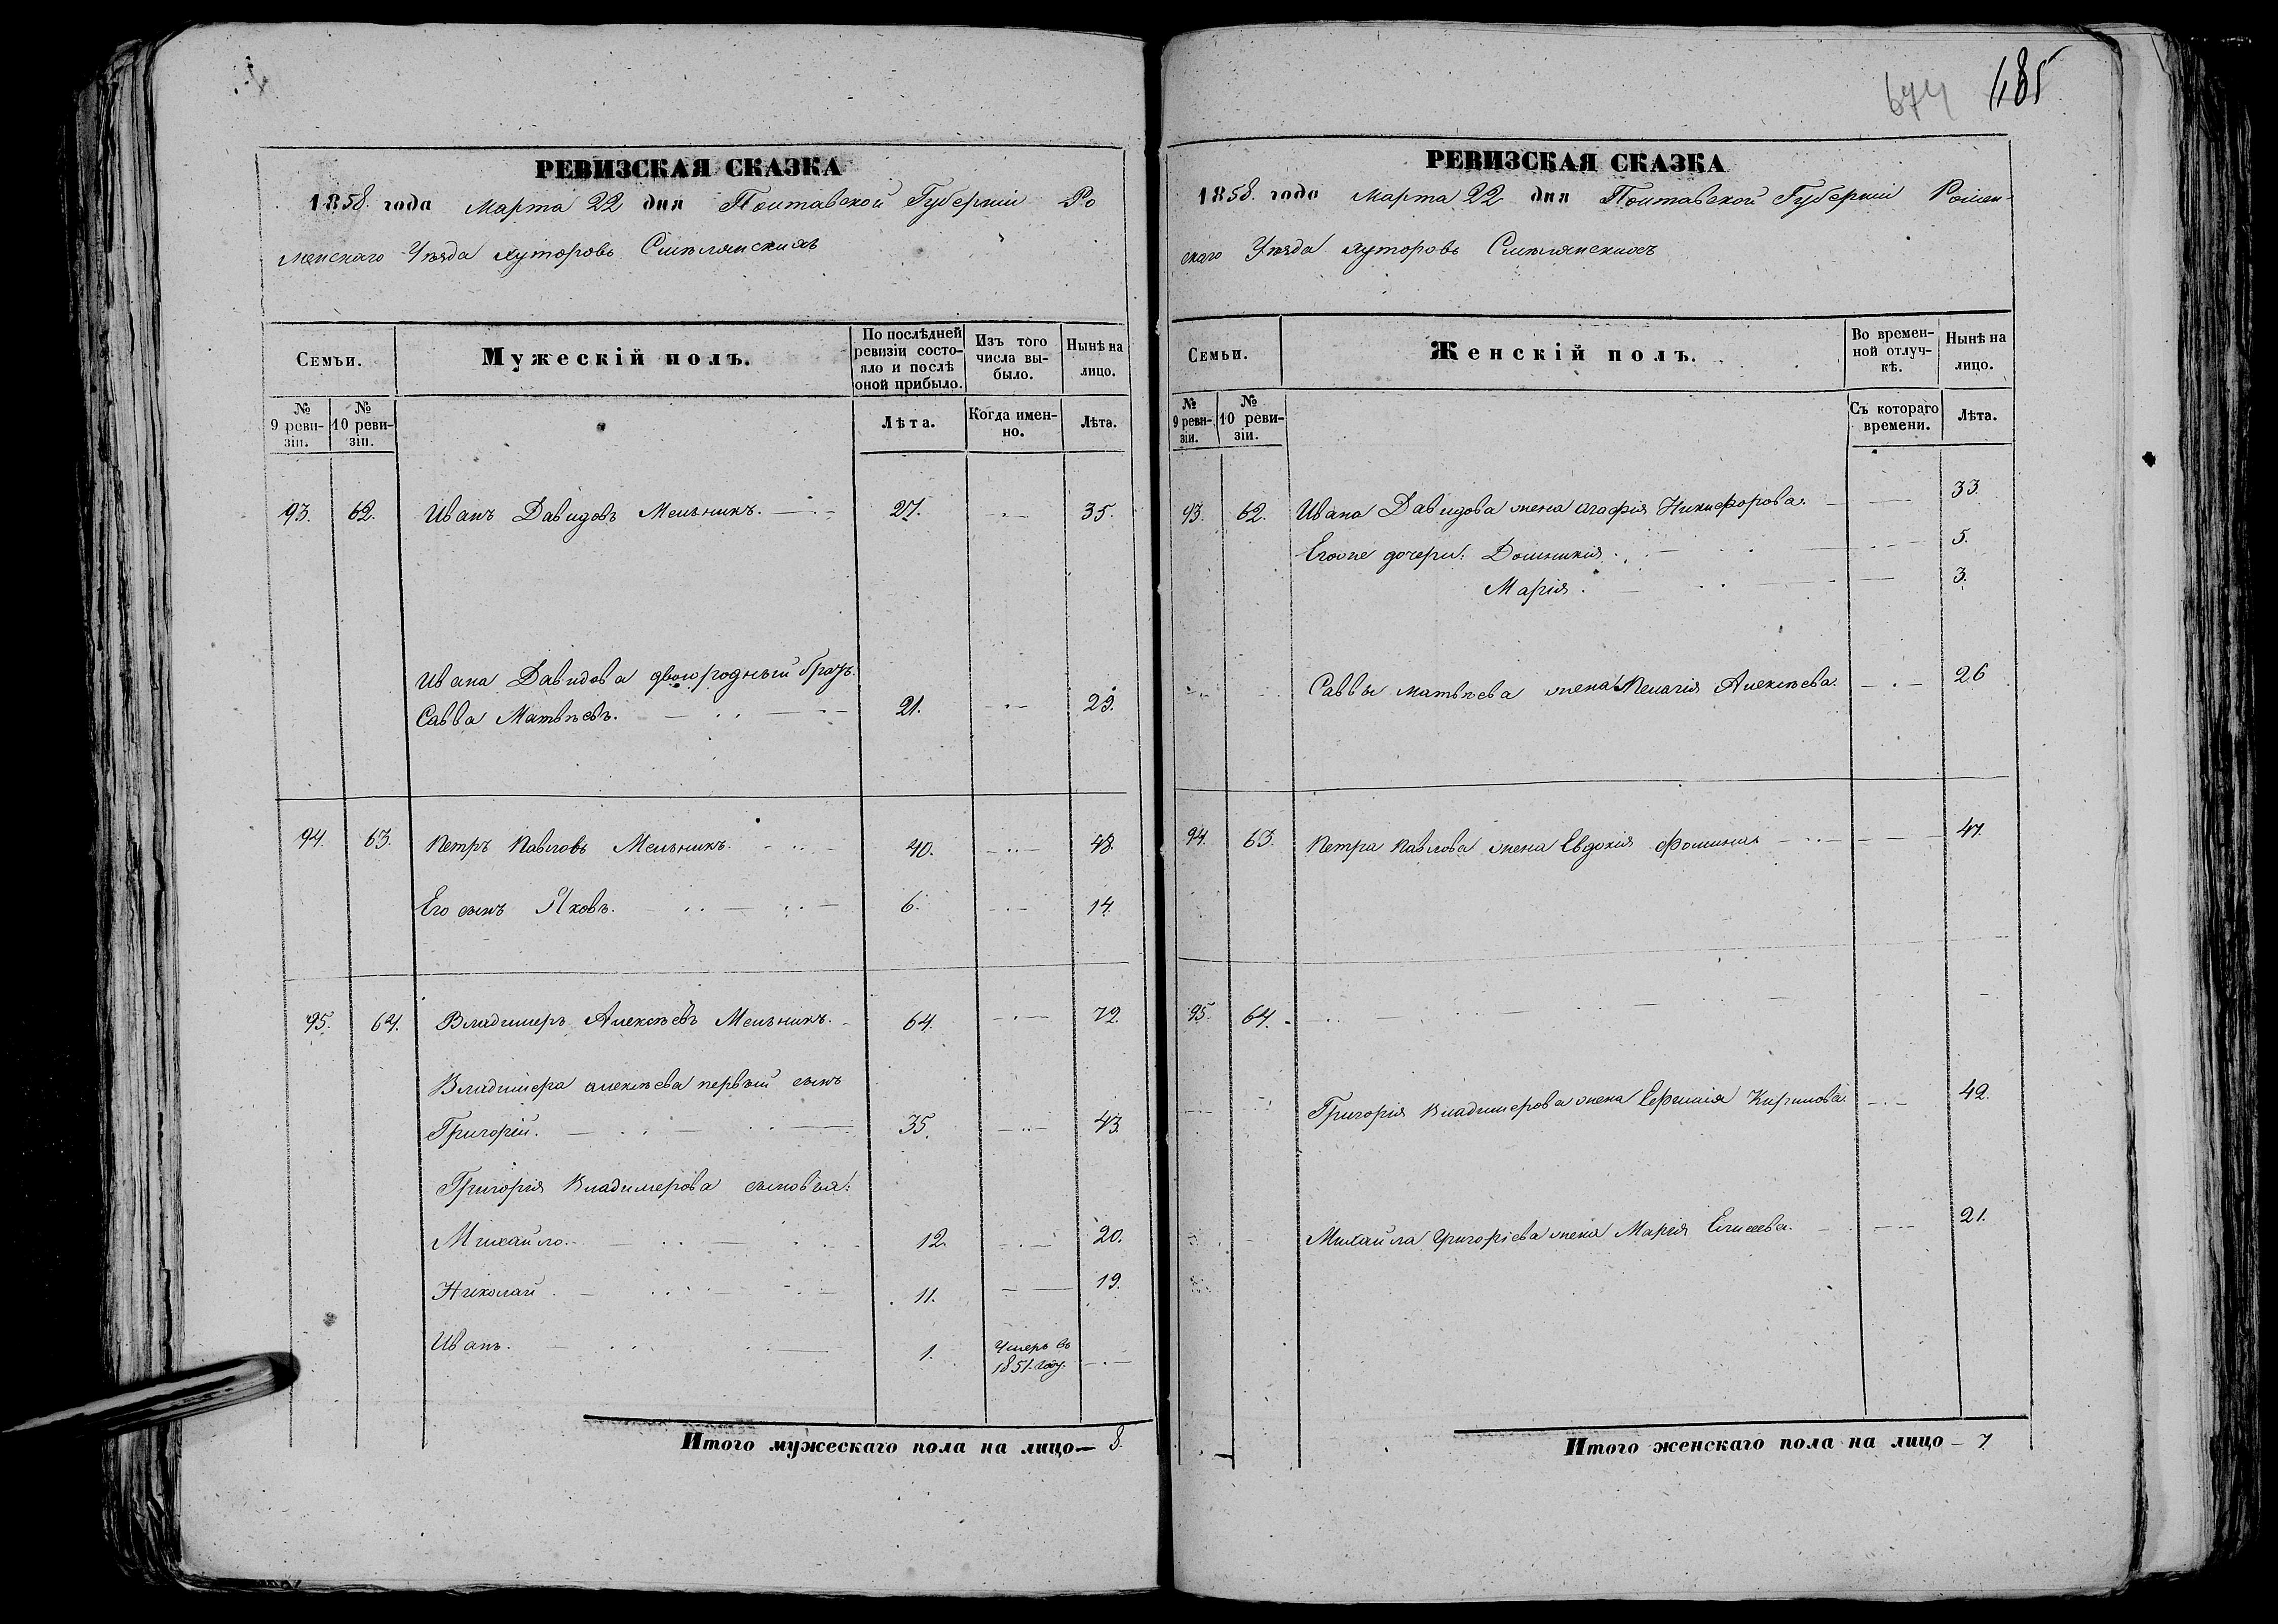 РЕВИЗСКАЯ СКАЗКА
1858. года Марта 22 дня Полтавской Губерніи Ро
менскаго Уѣзда хуторовъ Смѣлянскихъ
Семьи.
Мужескій полъ.
По послѣдней ревизіи состояло и послѣ оной прибыло.
Изъ того числа выбыло.
Нынѣ на лицо.
№ 9 ревизіи.
№ 10 ревизіи.
Лѣта.
Когда именно.
Лѣта.
93. 62. Иванъ Давидовъ Мельникъ. 27. 35.
Ивана Давидова двоюродный братъ
Савва Матвѣевъ. 21. 29.
94. 63. Петръ Павловъ Мельникъ. 40. 48.
Его сынъ Яковъ. 6. 14.
95. 64. Владимеръ Алексѣевъ Мельникъ. 64. 72.
Владимера алексѣева первый сынъ
Григорій. 35. 43.
Григорія Владимерова сыновья:
Михайло. 12. 20.
Николай. 11. 19.
Иванъ. 1. Умеръ въ
1851. году.
Итого мужескаго пола на лицо — 8.
674 485
РЕВИЗСКАЯ СКАЗКА
1858. года Марта 22 дня Полтавской Губерніи Ромен-
скаго Уѣзда хуторовъ Смѣлянскихъ
Семьи.
Женскій полъ.
Во временной отлучкѣ.
Нынѣ на лицо.
№ 9 ревизіи.
№ 10 ревизіи.
Съ котораго времени.
Лѣта.
93. 62. Ивана Давидова жена Агафія Никифорова. 33.
Егоже дочери: Домникія. 5.
Марія. 3.
Саввы матвѣева жена Пелагія Алексѣева. 26
94. 63. Петра Павлова жена Евдокія Фомина 47.
95. 64.
Григорія Владимерова жена Ефимія Кирилова. 42.
Михаила Григоріева жена Марія Елисеева. 21.
Итого женскаго пола на лицо — 7